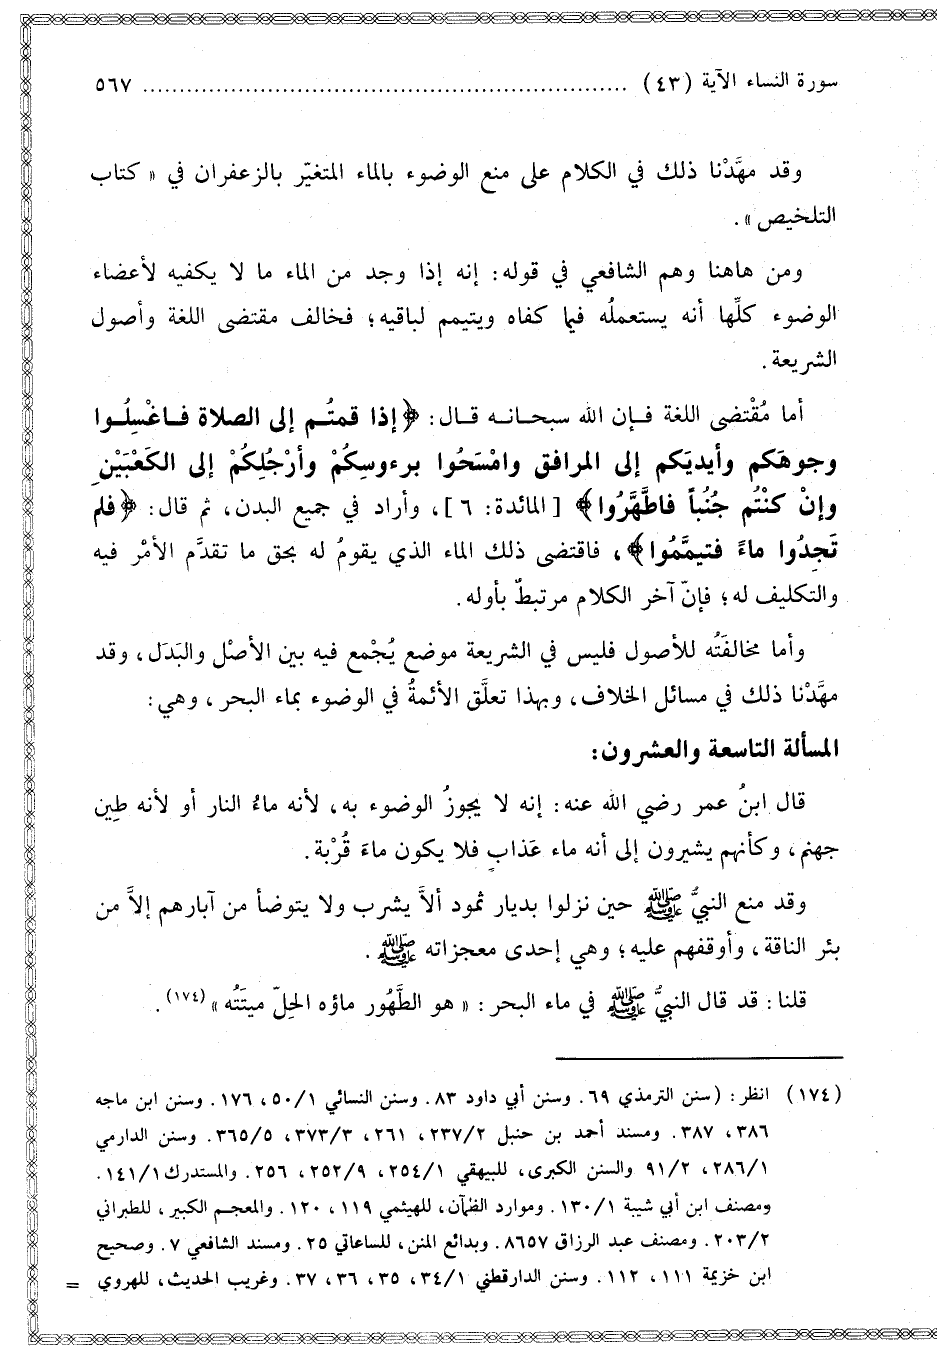 سورة النساء الآية (٤٣) ................................................................ ٥٦٧
وقد مهَّدْنا ذلك في الكلام على منع الوضوء بالماء المتغيّر بالزعفران في « كتاب
التلخيص ».
ومن هاهنا وهم الشافعي في قوله: إنه إذا وجد من الماء ما لا يكفيه لأعضاء
الوضوء كلِّها أنه يستعملُه فيما كفاه ويتيمم لباقيه؛ فخالف مقتضى اللغة وأصول
الشريعة.
أما مُقْتضى اللغة فإن الله سبحانه قال: ﴿إذا قمتُم إلى الصلاة فاغْسِلُوا
وجوهَكم وأيديَكم إلى المرافق وامْسَحُوا برءوسِكُمْ وأرْجُلِكُمْ إلى الكَعْبَيْنِ
وإنْ كنْتُم جُنُباً فاطَّهَّرُوا﴾ [المائدة: ٦]، وأراد في جميع البدن، ثم قال: ﴿فلم
تَجِدُوا ماءً فتيمَّمُوا﴾، فاقتضى ذلك الماء الذي يقومُ له بحق ما تقدَّم الأمْر فيه
والتكليف له؛ فإنّ آخر الكلام مرتبطٌ بأوله.
وأما مخالفَتُه للأصول فليس في الشريعة موضع يُجْمع فيه بين الأصْل والبَدَل، وقد
مهَّدْنا ذلك في مسائل الخلاف، وبهذا تعلَّق الأئمةُ في الوضوء بماء البحر، وهي:
المسألة التاسعة والعشرون:
قال ابنُ عمر رضي الله عنه: إنه لا يجوزُ الوضوء به، لأنه ماءُ النار أو لأنه طِين
جهنم، وكأنهم يشيرون إلى أنه ماء عَذابٍ فلا يكون ماءَ قُرْبة.
وقد منع النبيُّ ﷺ حين نزلوا بديار ثمود ألاَّ يشرب ولا يتوضأ من آبارهم إلاَّ من
بئر الناقة، وأوقفهم عليه؛ وهي إحدى معجزاته ﷺ.
قلنا: قد قال النبيُّ ﷺ في ماء البحر: « هو الطَّهُور ماؤه الحِلّ ميتَتُه »(١٧٤).
(١٧٤) انظر: (سنن الترمذي ٦٩. وسنن أبي داود ٨٣. وسنن النسائي ٥٠/١، ١٧٦. وسنن ابن ماجه
٣٨٦، ٣٨٧. ومسند أحمد بن حنبل ٢٣٧/٢، ٢٦١، ٣٧٣/٣، ٣٦٥/٥. وسنن الدارمي
٢٨٦/١، ٩١/٢ والسنن الكبرى، للبيهقي ٢٥٤/١، ٢٥٢/٩، ٢٥٦. والمستدرك ١٤١/١.
ومصنف ابن أبي شيبة ١٣٠/١. وموارد الظمآن، للهيثمي ١١٩، ١٢٠. والمعجم الكبير، للطبراني
٢٠٣/٢. ومصنف عبد الرزاق ٨٦٥٧. وبدائع المنن، للساعاتي ٢٥. ومسند الشافعي ٧. وصحيح
ابن خزيمة ١١١، ١١٢. وسنن الدارقطني ٣٤/١، ٣٥، ٣٦، ٣٧. وغريب الحديث، للهروي =